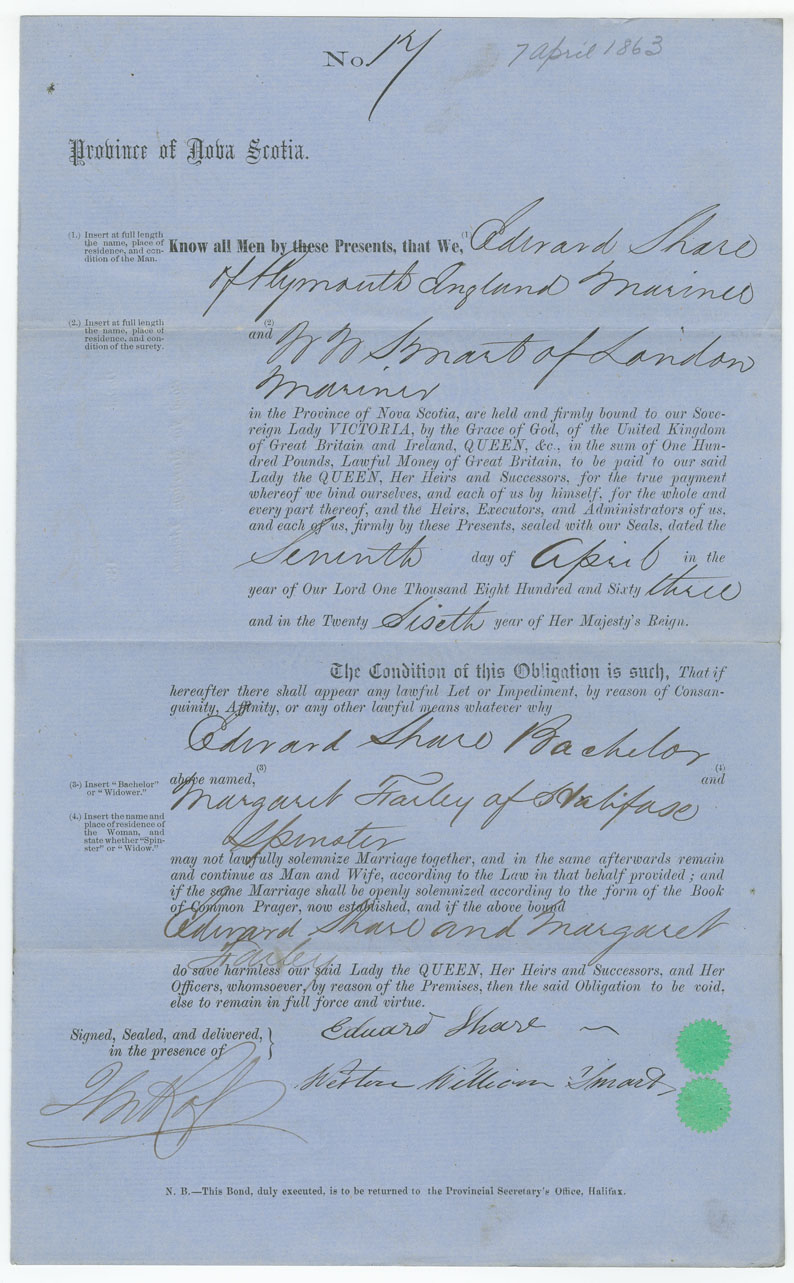 No. 17
7 April 1863
Province of Nova Scotia.
(1.) Insert at full length
the name, place of
residence, and con-
dition of the Man.
Know all Men by these Presents, that We, (1) Edward Share
of Plymouth England Mariner
(2.) Insert at full length
the name, place of
residence, and con-
dition of the surety.
and (2) W W Smart of London
Mariner
in the Province of Nova Scotia, are held and firmly bound to our Sove-
reign Lady VICTORIA, by the Grace of God, of the United Kingdom
of Great Britain and Ireland, QUEEN, &c., in the sum of One Hun-
dred Pounds, Lawful Money of Great Britain, to be paid to our said
Lady the QUEEN, Her Heirs and Successors, for the true payment
whereof we bind ourselves, and each of us by himself, for the whole and
every part thereof, and the Heirs, Executors, and Administrators of us,
and each of us, firmly by these Presents, sealed with our Seals, dated the
Seventh day of April in the
year of Our Lord One Thousand Eight Hundred and Sixty three
and in the Twenty Sixth year of Her Majesty's Reign.
The Condition of this Obligation is such, That if
hereafter there shall appear any lawful Let or Impediment, by reason of Consan-
guinity, Affinity, or any other lawful means whatever why
Edward Share Bachelor
(3.) Insert "Bachelor"
or "Widower."
above named, (3) and (4)
Margaret Farley of Halifax
(4.) Insert the name and
place of residence of
the Woman, and
state whether "Spin-
ster" or "Widow."
Spinster
may not lawfully solemnize Marriage together, and in the same afterwards remain
and continue as Man and Wife, according to the Law in that behalf provided; and
if the same Marriage shall be openly solemnized according to the form of the Book
of Common Prager, now established, and if the above bound
Edward Share and Margaret
Farley
do save harmless our said Lady the QUEEN, Her Heirs and Successors, and Her
Officers, whomsoever, by reason of the Premises, then the said Obligation to be void,
else to remain in full force and virtue.
Signed, Sealed, and delivered,
in the presence of
Edward Share
William Smart
N. B.—This Bond, duly executed, is to be returned to the Provincial Secretary's Office, Halifax.